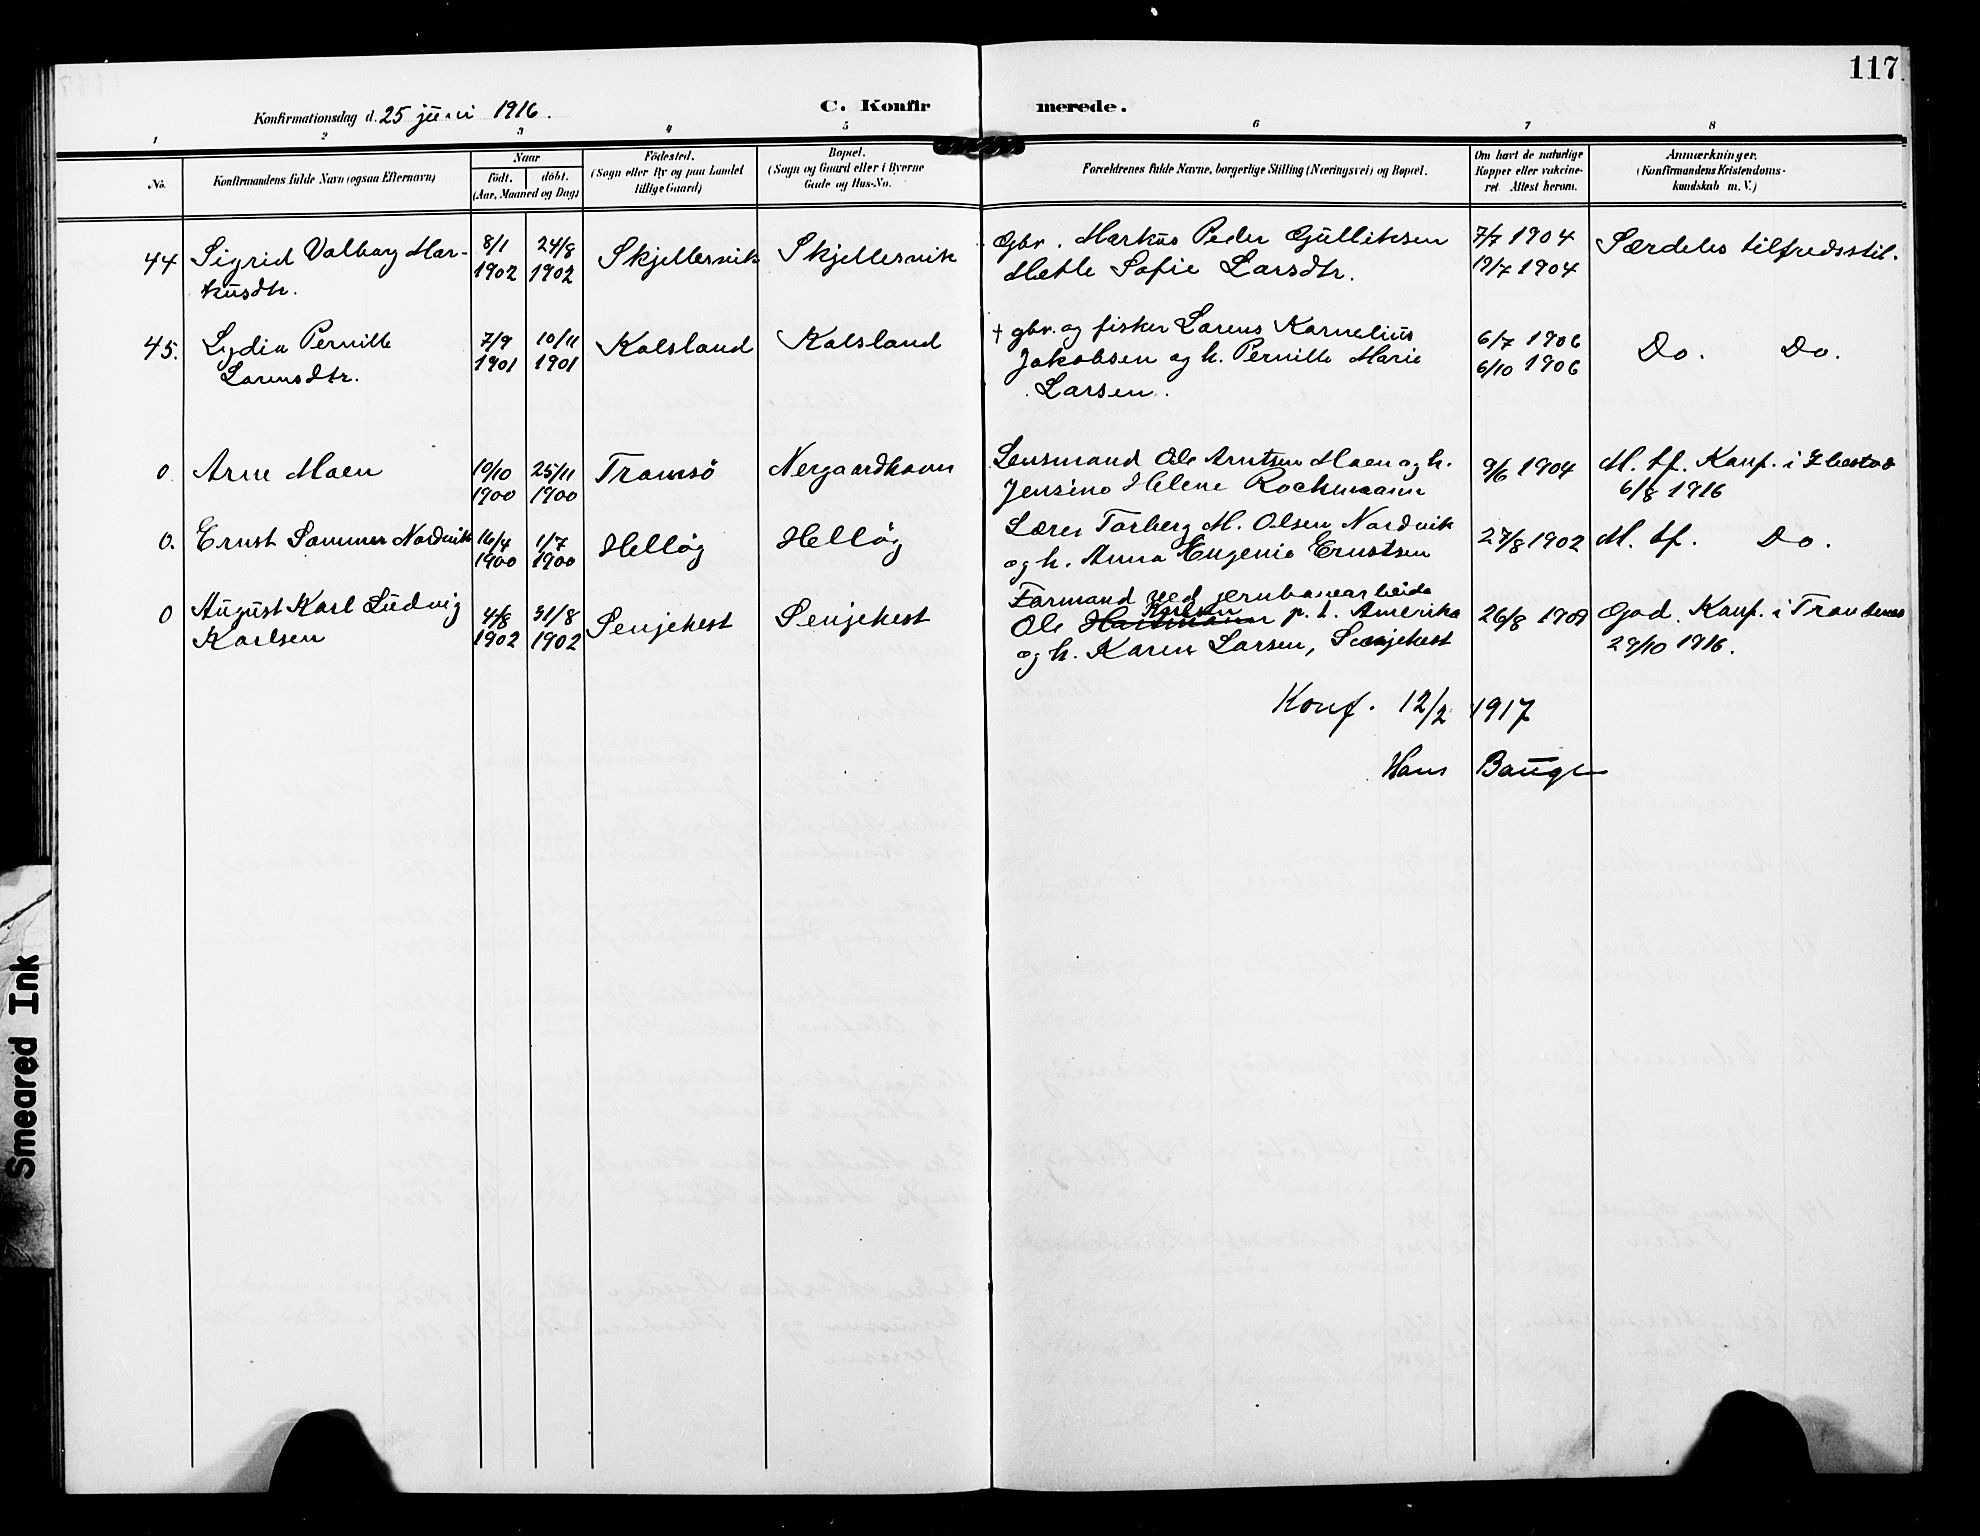 117
Konfirmationsdag d. 25 juni 1916.
C. Konfir merede.
1 2 3 4 5 6 7 8
No.
Konfirmandens fulde Navn (ogsaa Efternavn)
Naar
födt. döbt.
(Aar, Maaned og Dag)
Födested.
(Sogn eller By og paa Landet
tillige Gaard)
Bopæl.
(Sogn og Gaard eller i Byerne
Gade og Hus-No.
Forældrenes fulde Navne, borgerlige Stilling (Næringsvei) og Bopæl.
Om havt de naturlige
Kopper eller vakcine-
ret. Attest herom.
Anmærkninger.
(Konfirmandens Kristendoms-
kundskab m. V.)
44 Sigrid Valborg Mar- 8/1 24/8 Skjellesvik Skjellesvik Gbr. Markus Peder Gulliksen 7/7 1904 Særdeles tilfredsstil.
kusdtr. 1902 1902 Mette Sofie Larsdtr. 19/7 1904
45. Lydia Pernille 7/9 10/11 Kalsland Kalsland + gbr. og fisker Lorens Kornelius 6/7 1906 Do. Do.
Lorensdtr. 1901 1901 Jakobsen og h. Pernille Marie 6/10 1906
Larsen.
0 Arne Moen 10/10 25/11 Tromsö Nergaardhavn Lensmand Ole Arntsen Moen og h. 9/6 1904 M. tf. Konf. i Ibestad
1900 1900 Jensine Helene Rochmann 6/8 1916
0. Ernst Sommer Nordvik 16/4 1/7 Hellög Hellög Lærer Torberg M. Olsen Nordvik 27/8 1902 M. tf. Do.
1900 1900 og h. Anna Eugenie Ernstsen
0 August Karl Ludvig 4/8 31/8 Senjehest Senjehest Formand ved jernbanearbeide
Karlsen 1902 1902 Ole Karlsen p. t. Amerika 26/8 1909 God. Konf. i Trondenes
og h. Karen Larsen, Senjehest 29/10 1916.
Konf. 12/2 1917
Hans Bauge
Smeared Ink